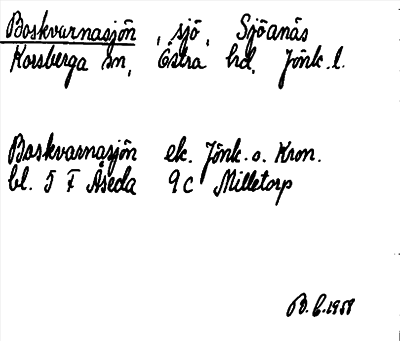 Boskvarnasjön, sjö, Sjöanäs
Korsberga sn, Östra hd, Jönk. l.
Boskvarnasjön ek. Jönk. o. Kron.
bl. 5 F Åseda 9 c Milletorp